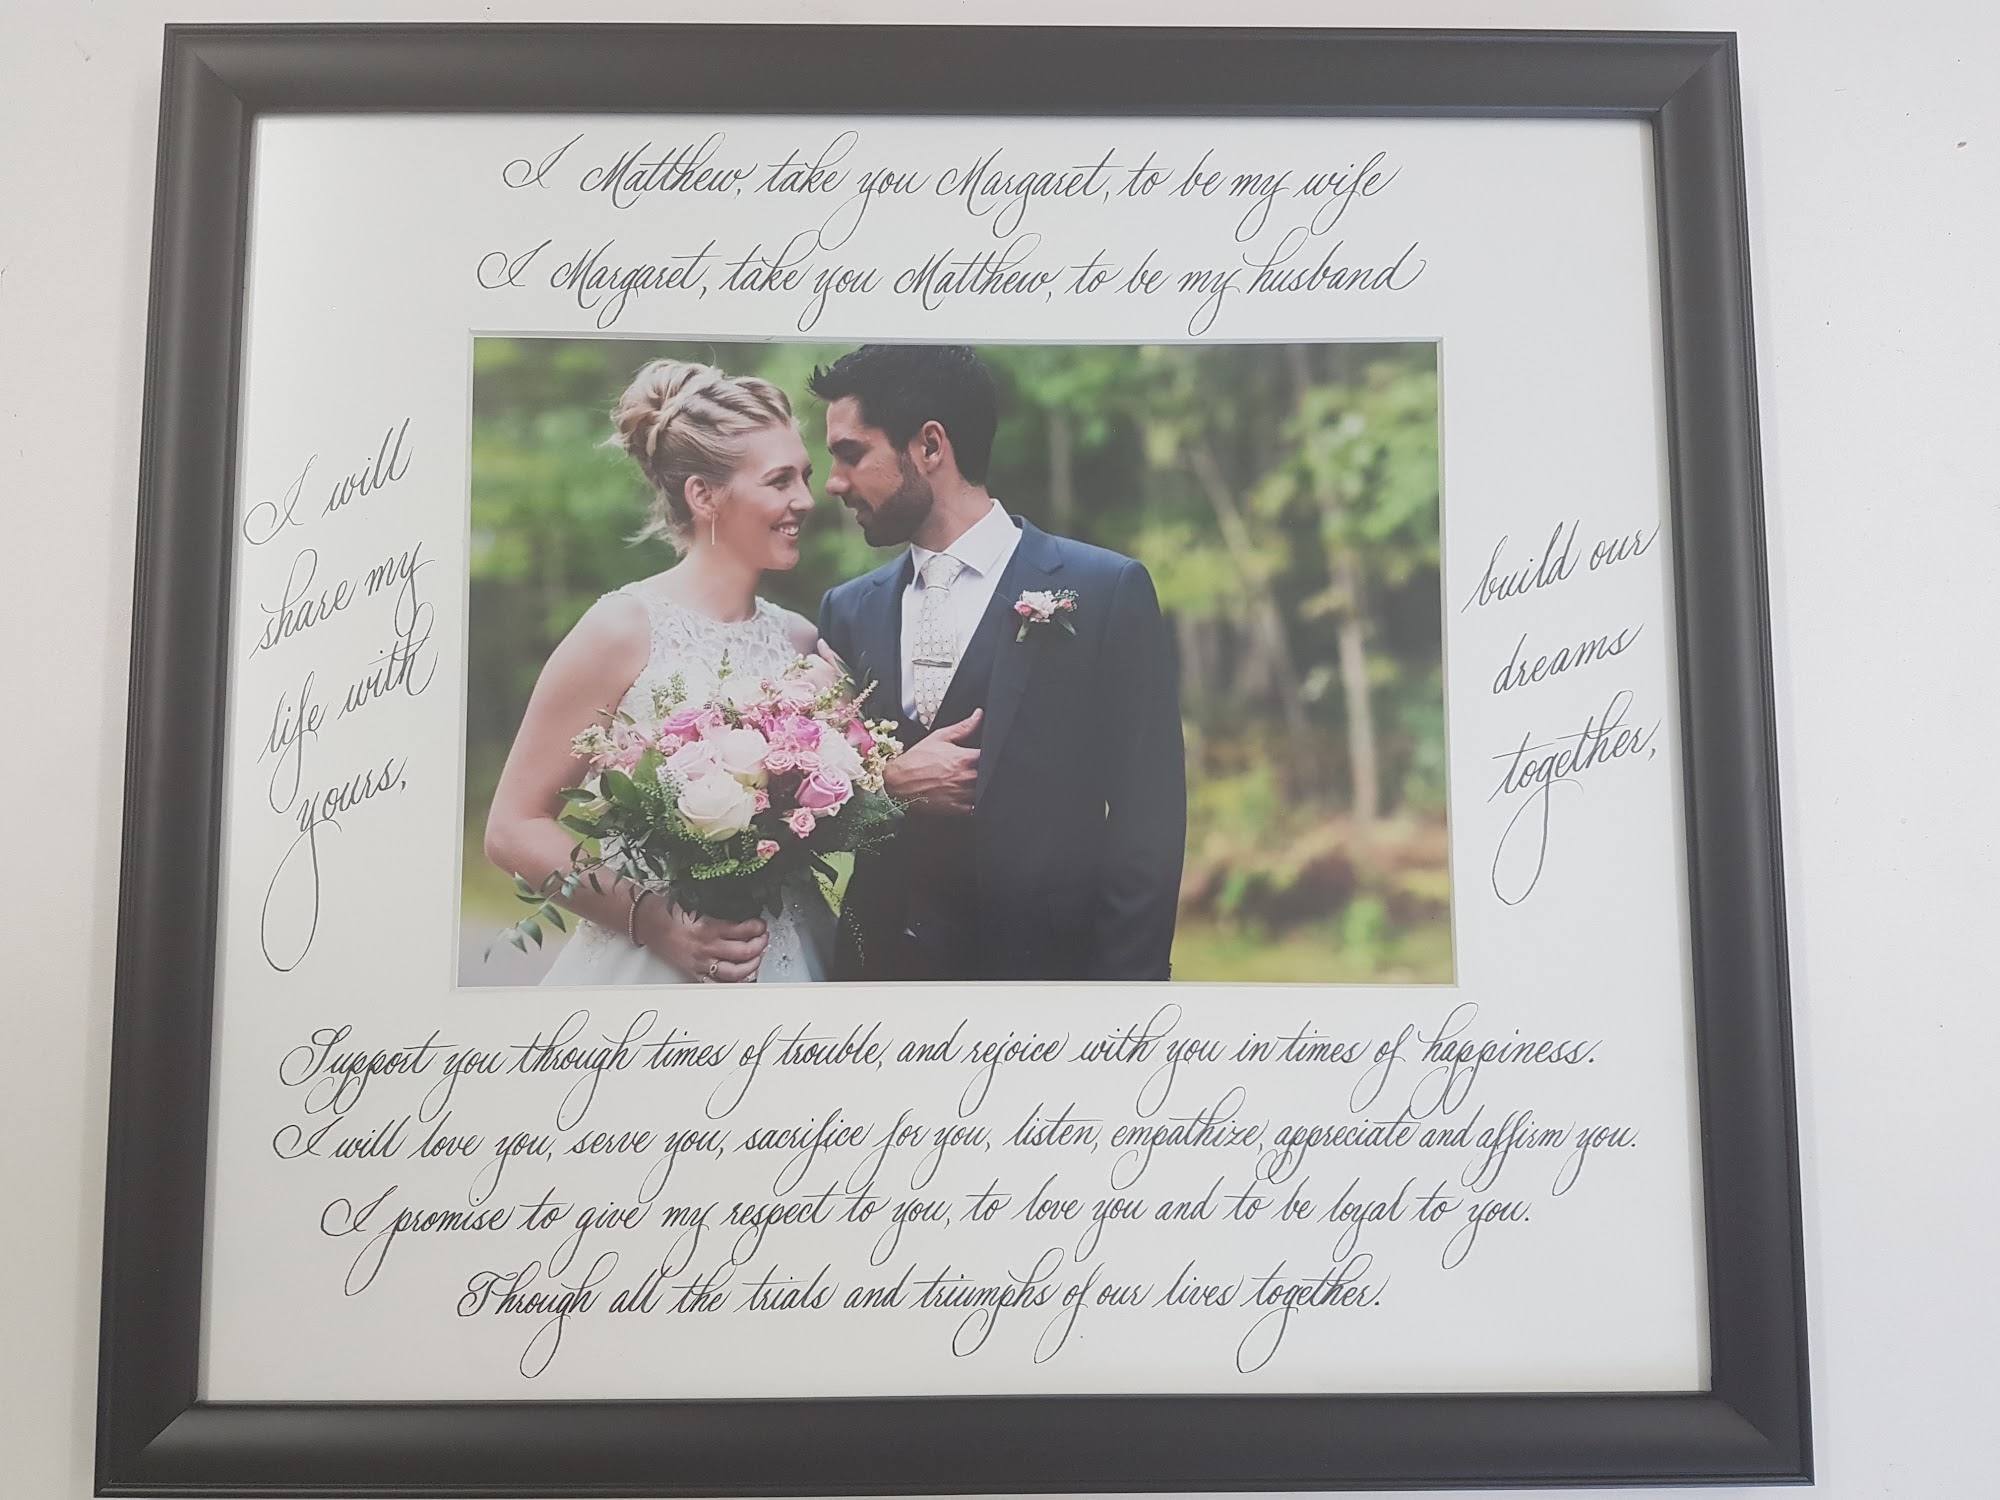 I Matthew, take you Margaret, to be my wife
I Margaret, take you Matthew, to be my husband
I will
share my
life with
yours,
build our
dreams
together,
Support you through times of trouble, and rejoice with you in times of happiness.
I will love you, serve you, sacrifice for you, listen, empathize, appreciate and affirm you.
I promise to give my respect to you, to love you and to be loyal to you.
Through all the trials and triumphs of our lives together.